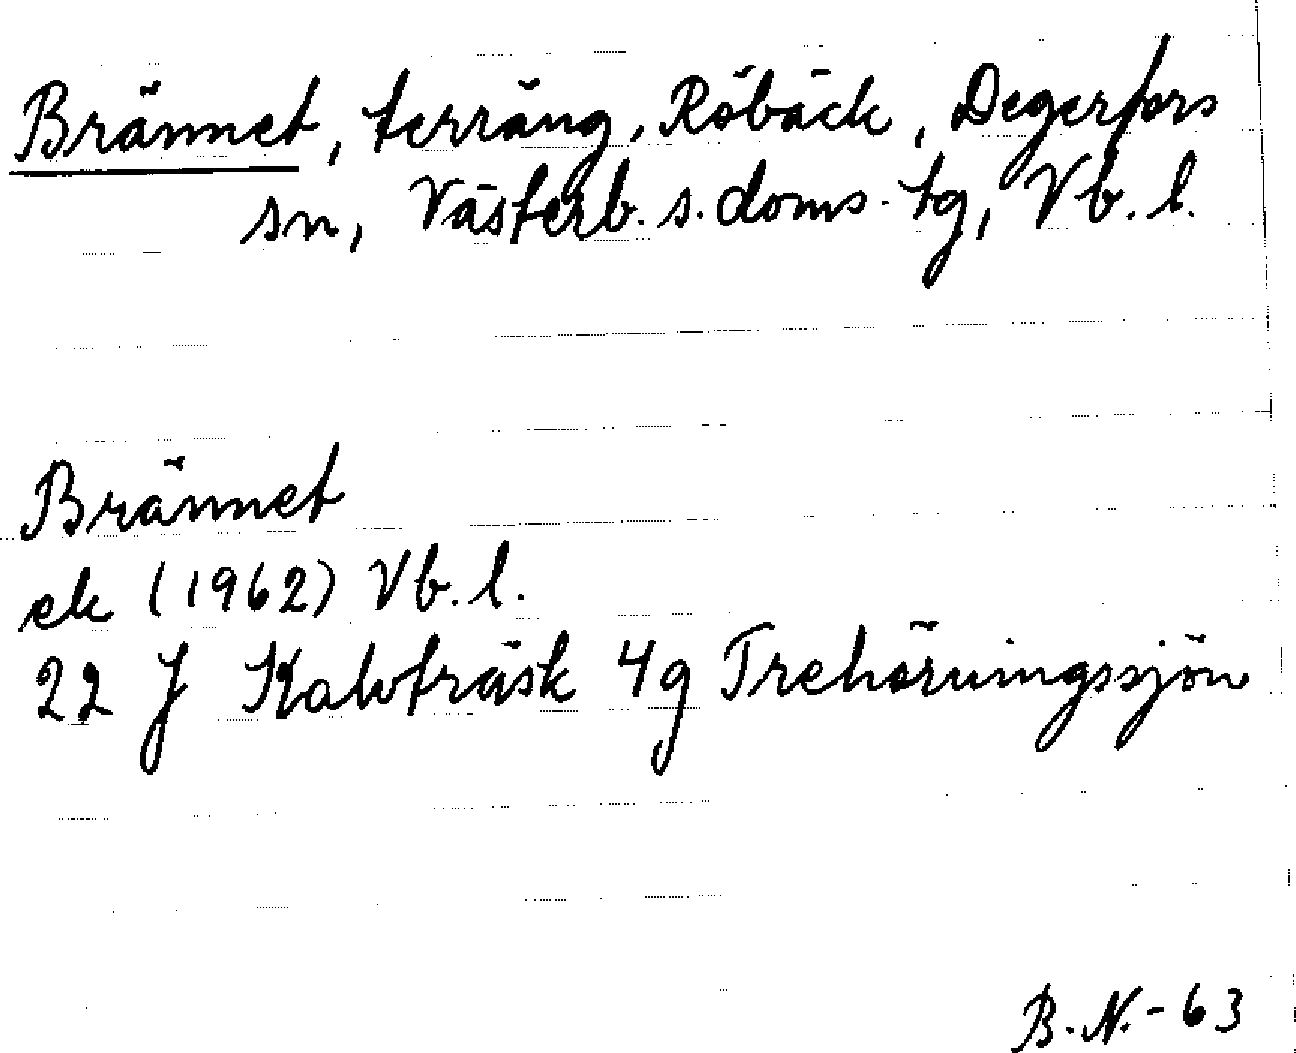 Brännet, terräng, Röbäck, Degerfors
sn, Västerb. s. doms. tg, Vb. l.
Brännet
ek (1962) Vb. l.
22 J Kalvträsk 4g Trehörningssjön
B. N. - 63